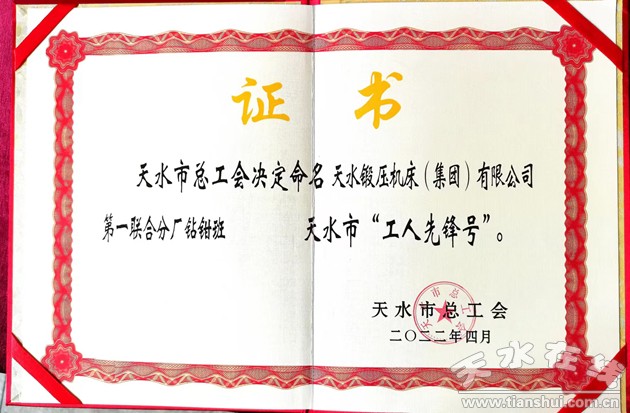 证 书
天水市总工会决定命名 天水锻压机床（集团）有限公司
第一联合分厂钻钳班 天水市“工人先锋号”。
天水市总工会
天水市总工会
二〇二二年四月
天水在线
www.tianshui.com.cn